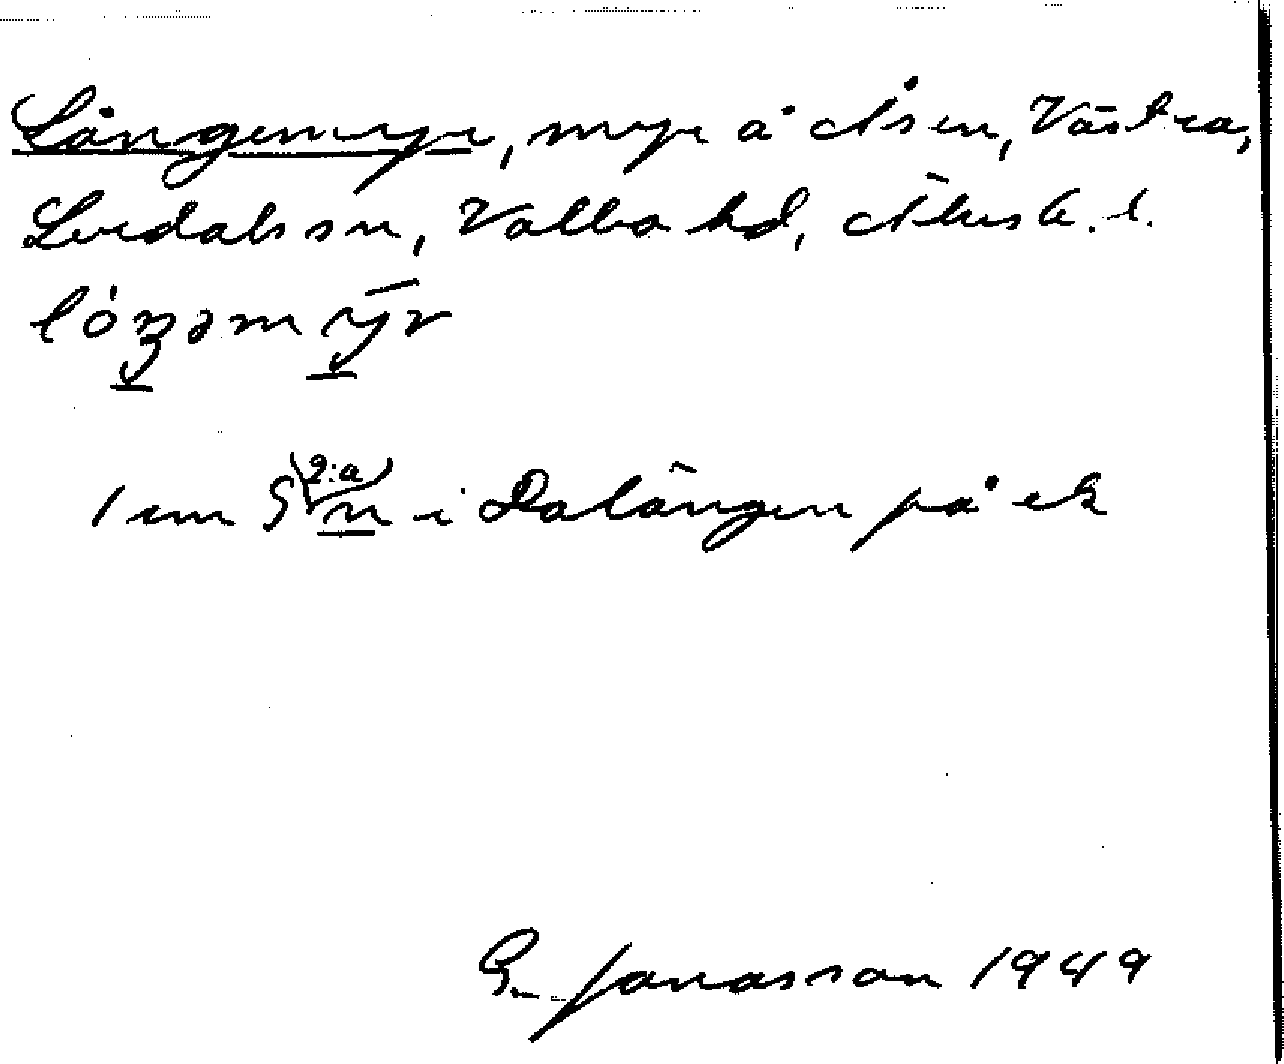 Långemyr, myr å Åsen, Västra,
Lerdals sn, Valbo hd, Älvsb. l.
1 cm S 2:a n i Dalängen på ek
G. Jonasson 1949